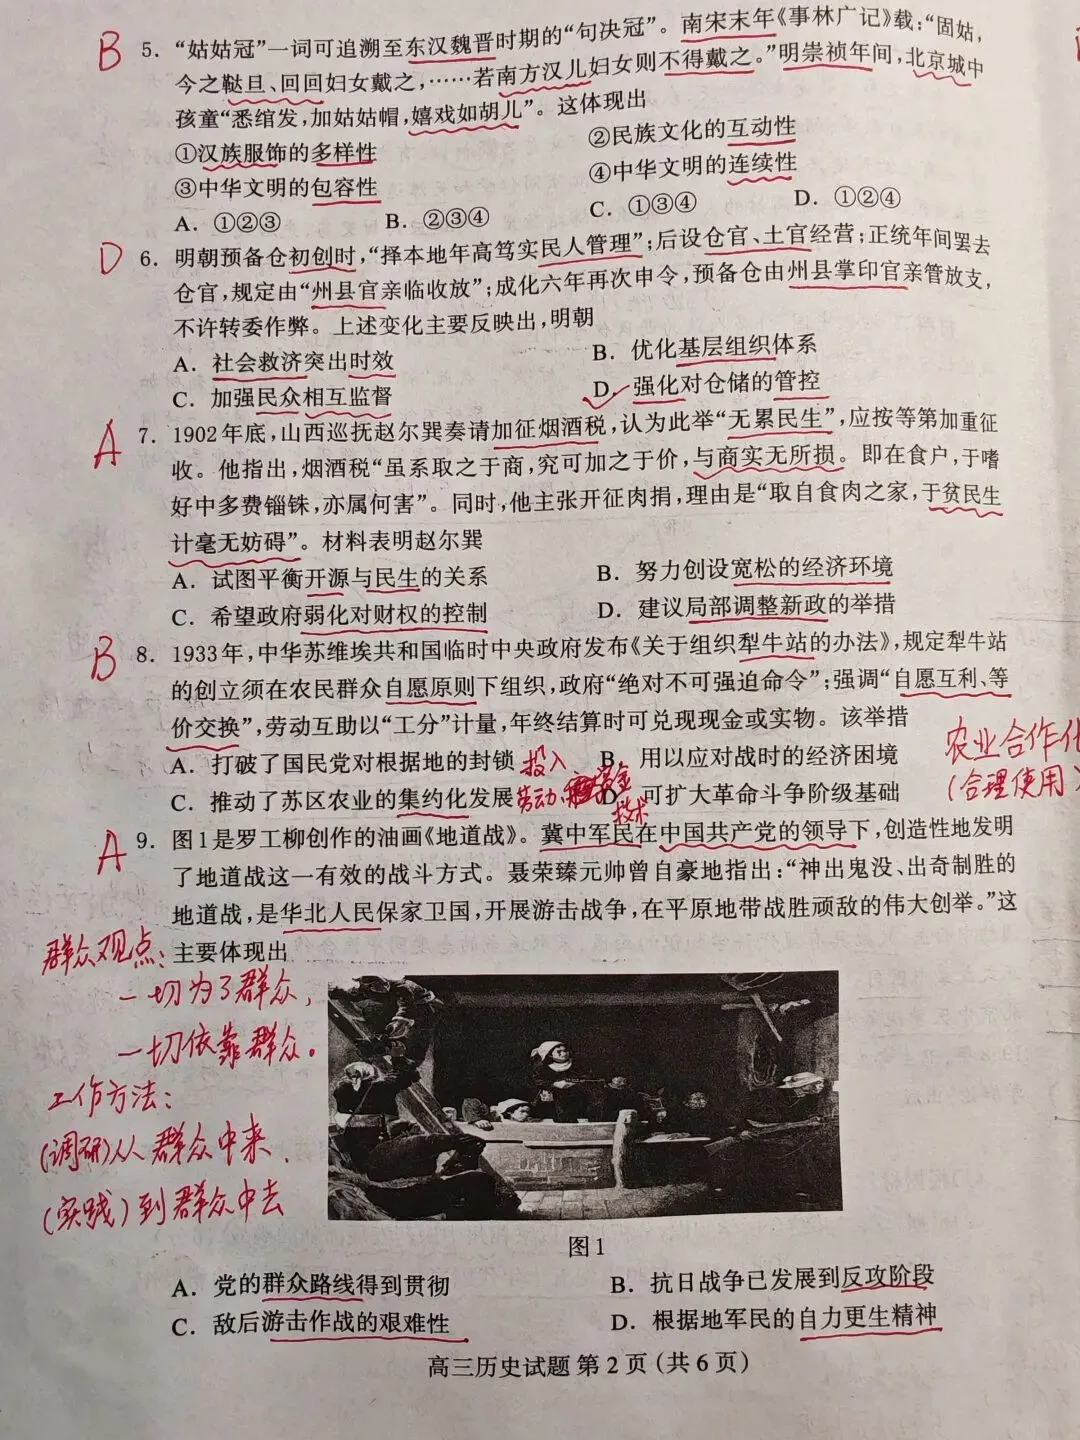 B 5. “姑姑冠”一词可追溯至东汉魏晋时期的“句决冠”。南宋末年《事林广记》载：“固姑，
今之鞑旦、回回妇女戴之，……若南方汉儿妇女则不得戴之。”明崇祯年间，北京城中
孩童“悉绾发，加姑姑帽，嬉戏如胡儿”。这体现出
①汉族服饰的多样性 ②民族文化的互动性
③中华文明的包容性 ④中华文明的连续性
A. ①②③ B. ②③④ C. ①③④ D. ①②④
D 6. 明朝预备仓初创时，“择本地年高笃实民人管理”；后设仓官、土官经营；正统年间罢去
仓官，规定由“州县官亲临收放”；成化六年再次申令，预备仓由州县掌印官亲管放支，
不许转委作弊。上述变化主要反映出，明朝
A. 社会救济突出时效 B. 优化基层组织体系
C. 加强民众相互监督 D. 强化对仓储的管控
A 7. 1902年底，山西巡抚赵尔巽奏请加征烟酒税，认为此举“无累民生”，应按等第加重征
收。他指出，烟酒税“虽系取之于商，究可加之于价，与商实无所损。即在食户，于嗜
好中多费锱铢，亦属何害”。同时，他主张开征肉捐，理由是“取自食肉之家，于贫民生
计毫无妨碍”。材料表明赵尔巽
A. 试图平衡开源与民生的关系 B. 努力创设宽松的经济环境
C. 希望政府弱化对财权的控制 D. 建议局部调整新政的举措
B 8. 1933年，中华苏维埃共和国临时中央政府发布《关于组织犁牛站的办法》，规定犁牛站
的创立须在农民群众自愿原则下组织，政府“绝对不可强迫命令”；强调“自愿互利、等
价交换”，劳动互助以“工分”计量，年终结算时可兑现现金或实物。该举措
农业合作化
A. 打破了国民党对根据地的封锁 投入 B. 用以应对战时的经济困境
(合理使用)
C. 推动了苏区农业的集约化发展 劳动、资金 D. 可扩大革命斗争阶级基础
技术
A 9. 图1是罗工柳创作的油画《地道战》。冀中军民在中国共产党的领导下，创造性地发明
了地道战这一有效的战斗方式。聂荣臻元帅曾自豪地指出：“神出鬼没、出奇制胜的
地道战，是华北人民保家卫国，开展游击战争，在平原地带战胜顽敌的伟大创举。”这
主要体现出
群众观点：
一切为了群众，
一切依靠群众。
工作方法：
(调研)从群众中来、
(实践)到群众中去
图1
A. 党的群众路线得到贯彻 B. 抗日战争已发展到反攻阶段
C. 敌后游击作战的艰难性 D. 根据地军民的自力更生精神
高三历史试题 第2页(共6页)